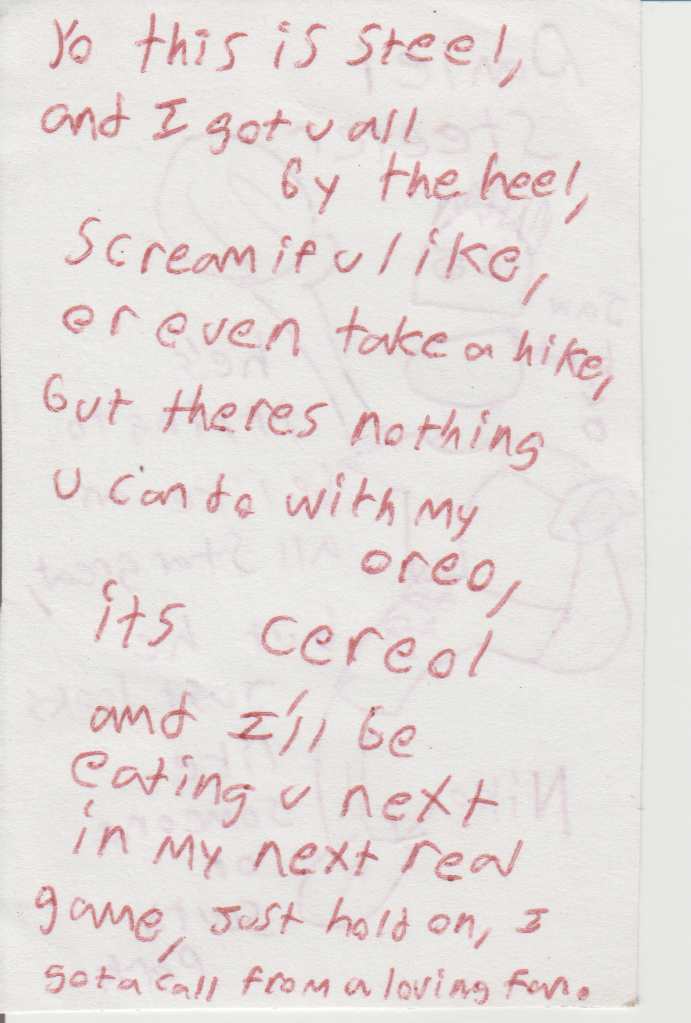 Yo this is steel,
and I got u all
by the heel,
Scream if u like,
or even take a hike,
but theres nothing
u can do with my
oreo,
its cereol
and I'll be
eating u next
in my next real
game, just hold on, I
got a call from a loving fan.